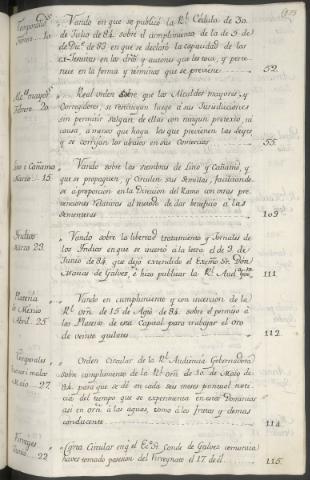 Temporalid.s Febrero. 10.
Vando en que se publicó la Rl. Cedula de 30.
de Julio de 84. sobre el cumplimiento de la de 5. de
Dic.e de 83 en que se declaró la capacidad de los
ex-Jesuitas en los y quienes que tenia, y perte-
nece en la forma y terminos que se previene 52.
Alc.es mayor.s Febrero. 20.
Real orden sobre que los Alcaldes mayores, y
Corregidores, se restituyan luego á sus Jurisdicciones
sin permitir salgan de ellas con ningun pretexto, ni
causa, á menos que haga los que previenen las leyes
y se corrijan los abusos en sus Comercios 55.
Lino i Cañamo Marzo 15.
Vando sobre las siembras de Lino y Cañamo, y
que se propaguen, y circulen sus Semillas, facilitando-
se á proporcion en la Direccion del Ramo con otras pre-
venciones relativas al mundo de dar beneficio á las
Sementeras 109.
Indios Marzo 23.
Vando sobre la libertad, tratamiento y Jornales de
los Indios en que se insertó á la letra el de 3. de
Junio de 84. que dejó extendido el Exmo Sr. Don
Matias de Galvez, é hizo publicar la Rl. Aud.a Gov.ra 111.
Plateria de Mexico Abril. 25.
Vando en cumplimiento y con insercion de la
Rl. orn de 15 de Ag.to de 84. sobre el permiso á
los Plateros de esta Capital para trabajar el oro
de veinte quilates 112.
Temporales buenos i malos Maio. 27.
Orden Circular de la Rl. Audiencia Gobernadora
sobre cumplimento de la Rl. orn de 10. de Maio de
84. para que se dé en cada seis meses puntual noti-
cia del tiempo que se experimenta en estos Dominios
asi en orn. á las aguas, como á los frutos y demas
conducente 114.
Virreyes Junio. 22.
Carta Circular en q. el Ex.o Sr. Conde de Galvez comunica
haver tomado posesion del Virreynato el 17. de il. 115.